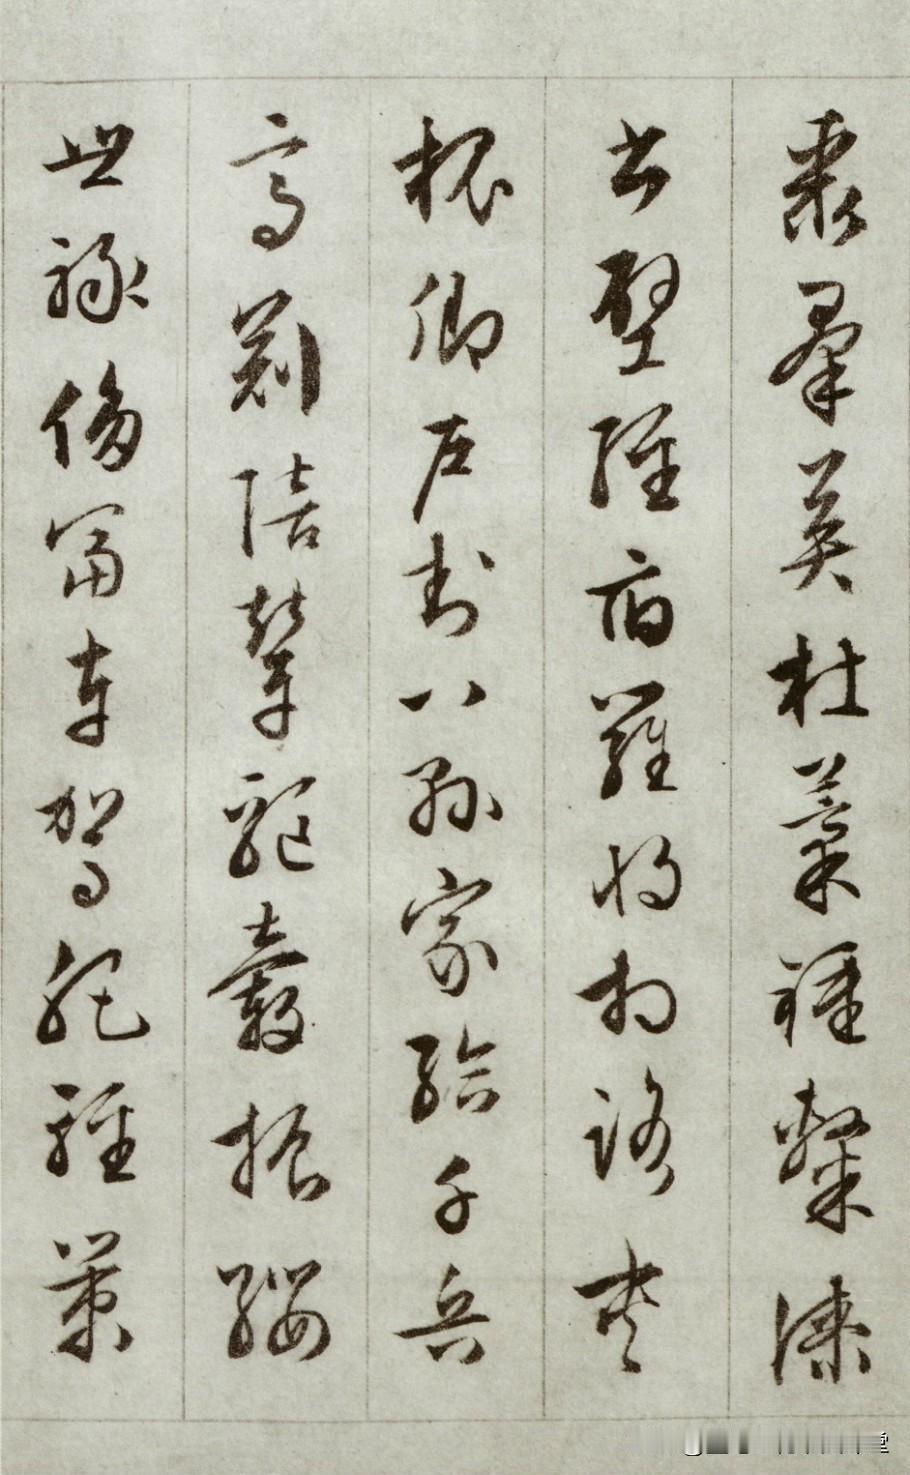 聚群英杜稾鍾隸漆
書壁經府羅將相路夾
槐卿戶封八縣家給千兵
高冠陪輦驅轂振纓
世祿侈富車駕肥輕策